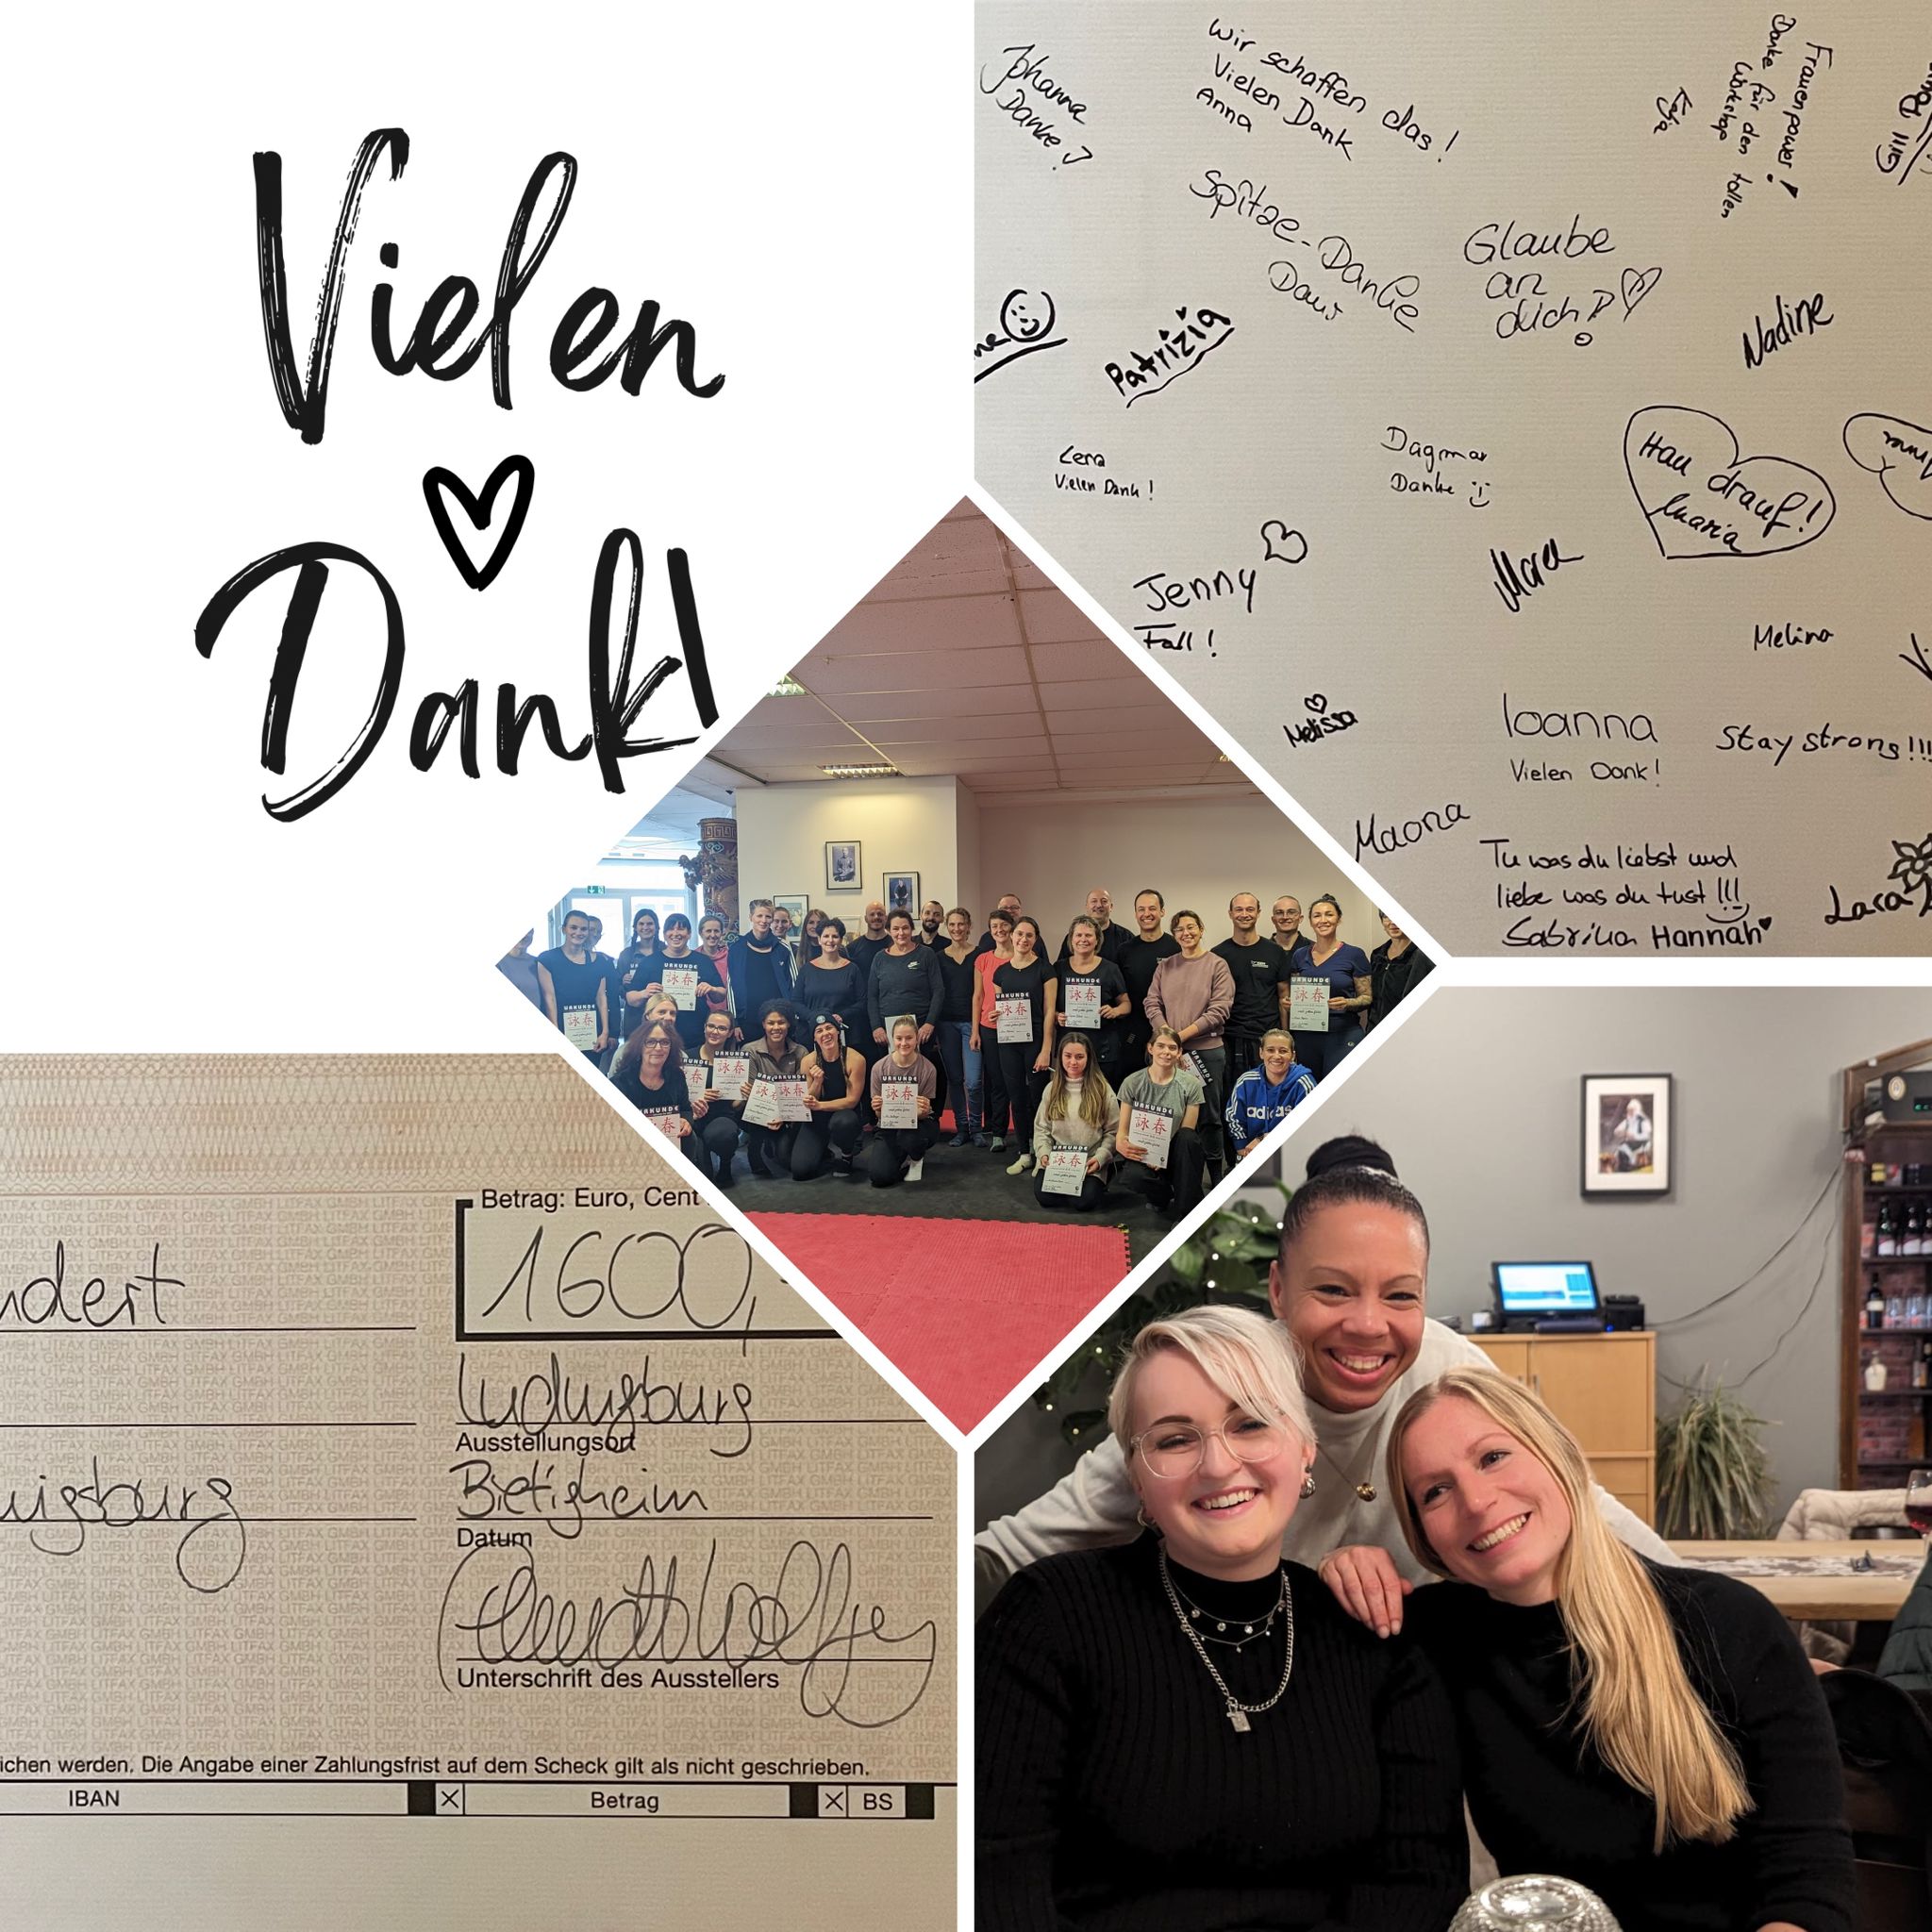 Vielen
Dank!
Johanna
Danke!
Wir schaffen das!
Vielen Dank
Anna
Frauenpower!
Danke für den tollen
Workshop
Katja
Spitze-Danke
Glaube
an
dich!
Patrizia
Nadine
Lena
Vielen Dank!
Dagmar
Danke
Hau drauf!
Maria
Jenny
Toll!
Melina
Melissa
Ioanna
Vielen Dank!
Stay strong!!!
Tu was du liebst und
liebe was du tust!!!
Sabrina Hannah
Lara
URKUNDE
詠春
adidas
Betrag: Euro, Cent
1600,-
ndert
Ludwigsburg
Ausstellungsort
wigsburg
Bietigheim
Datum
Unterschrift des Ausstellers
ichen werden. Die Angabe einer Zahlungsfrist auf dem Scheck gilt als nicht geschrieben.
IBAN
Betrag
BS
LITFAX GMBH